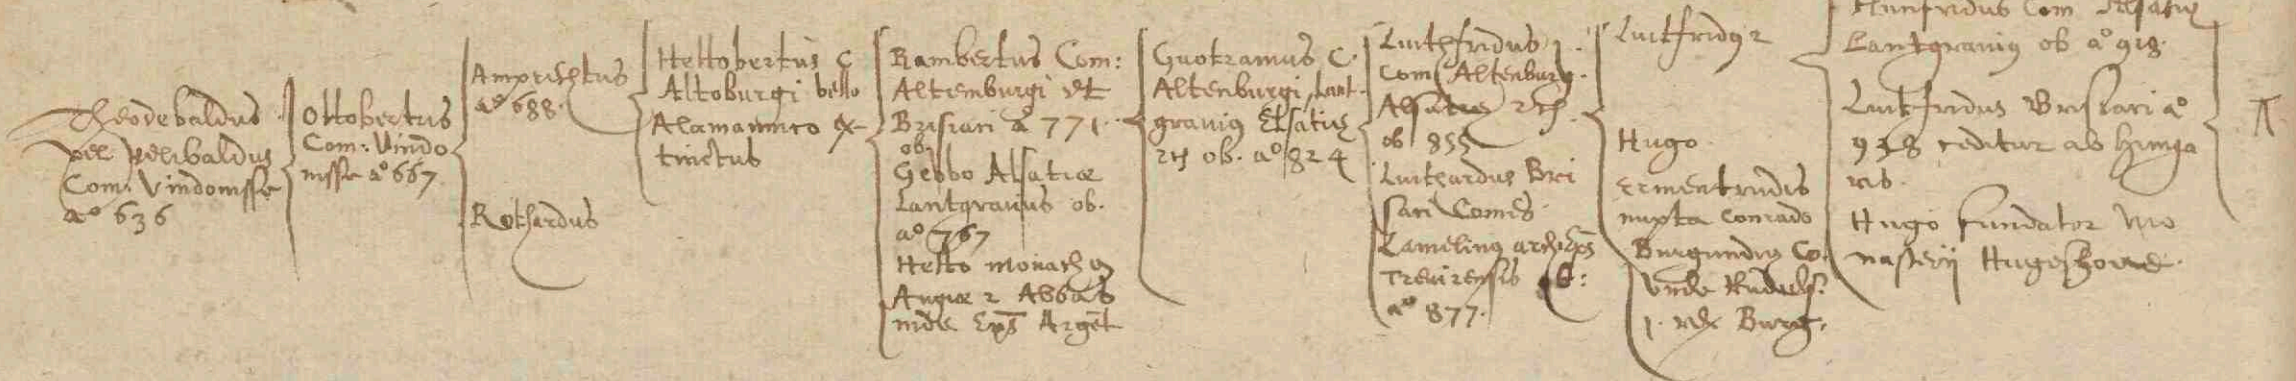 Theodebaldus
vel
Com: Vindonisse
aº 636
Ottobertus
Com: Vindo
nisse aº 667
aº 688.
Rothardus
Hettobertus C
Altoburgi bello
Alamannico ex-
tinctus
Rambertus Com:
Altemburgi et
Brisiaci aº 771.
ob.
Gebbo Alsatiæ
Lantgravius ob.
aº 767
Hetto monachus
Augiæ 2 Abbas
inde Eps Arget
Guotramus C.
Altenburgi, Lant-
gravius Elsatiæ
etc ob. aº 824
Luithfridus 1.
Com Altenburg.
Alsatiæ etc.
ob 855
Luithardus Bri
saci Comes
archieps
Trevirensis ob:
aº 877.
Luitfridus 2
Hugo
Ermentrudis
nupta Conrado
Burgundiæ Co.
unde Rudolf.
1. rex Burg.
Hunfridus Com Alsatiæ
Lantgravius ob aº 918.
Luitfridus Brisiaci aº
ceditur ab Hunga
ris.
Hugo fundator Mo
nasterij
A